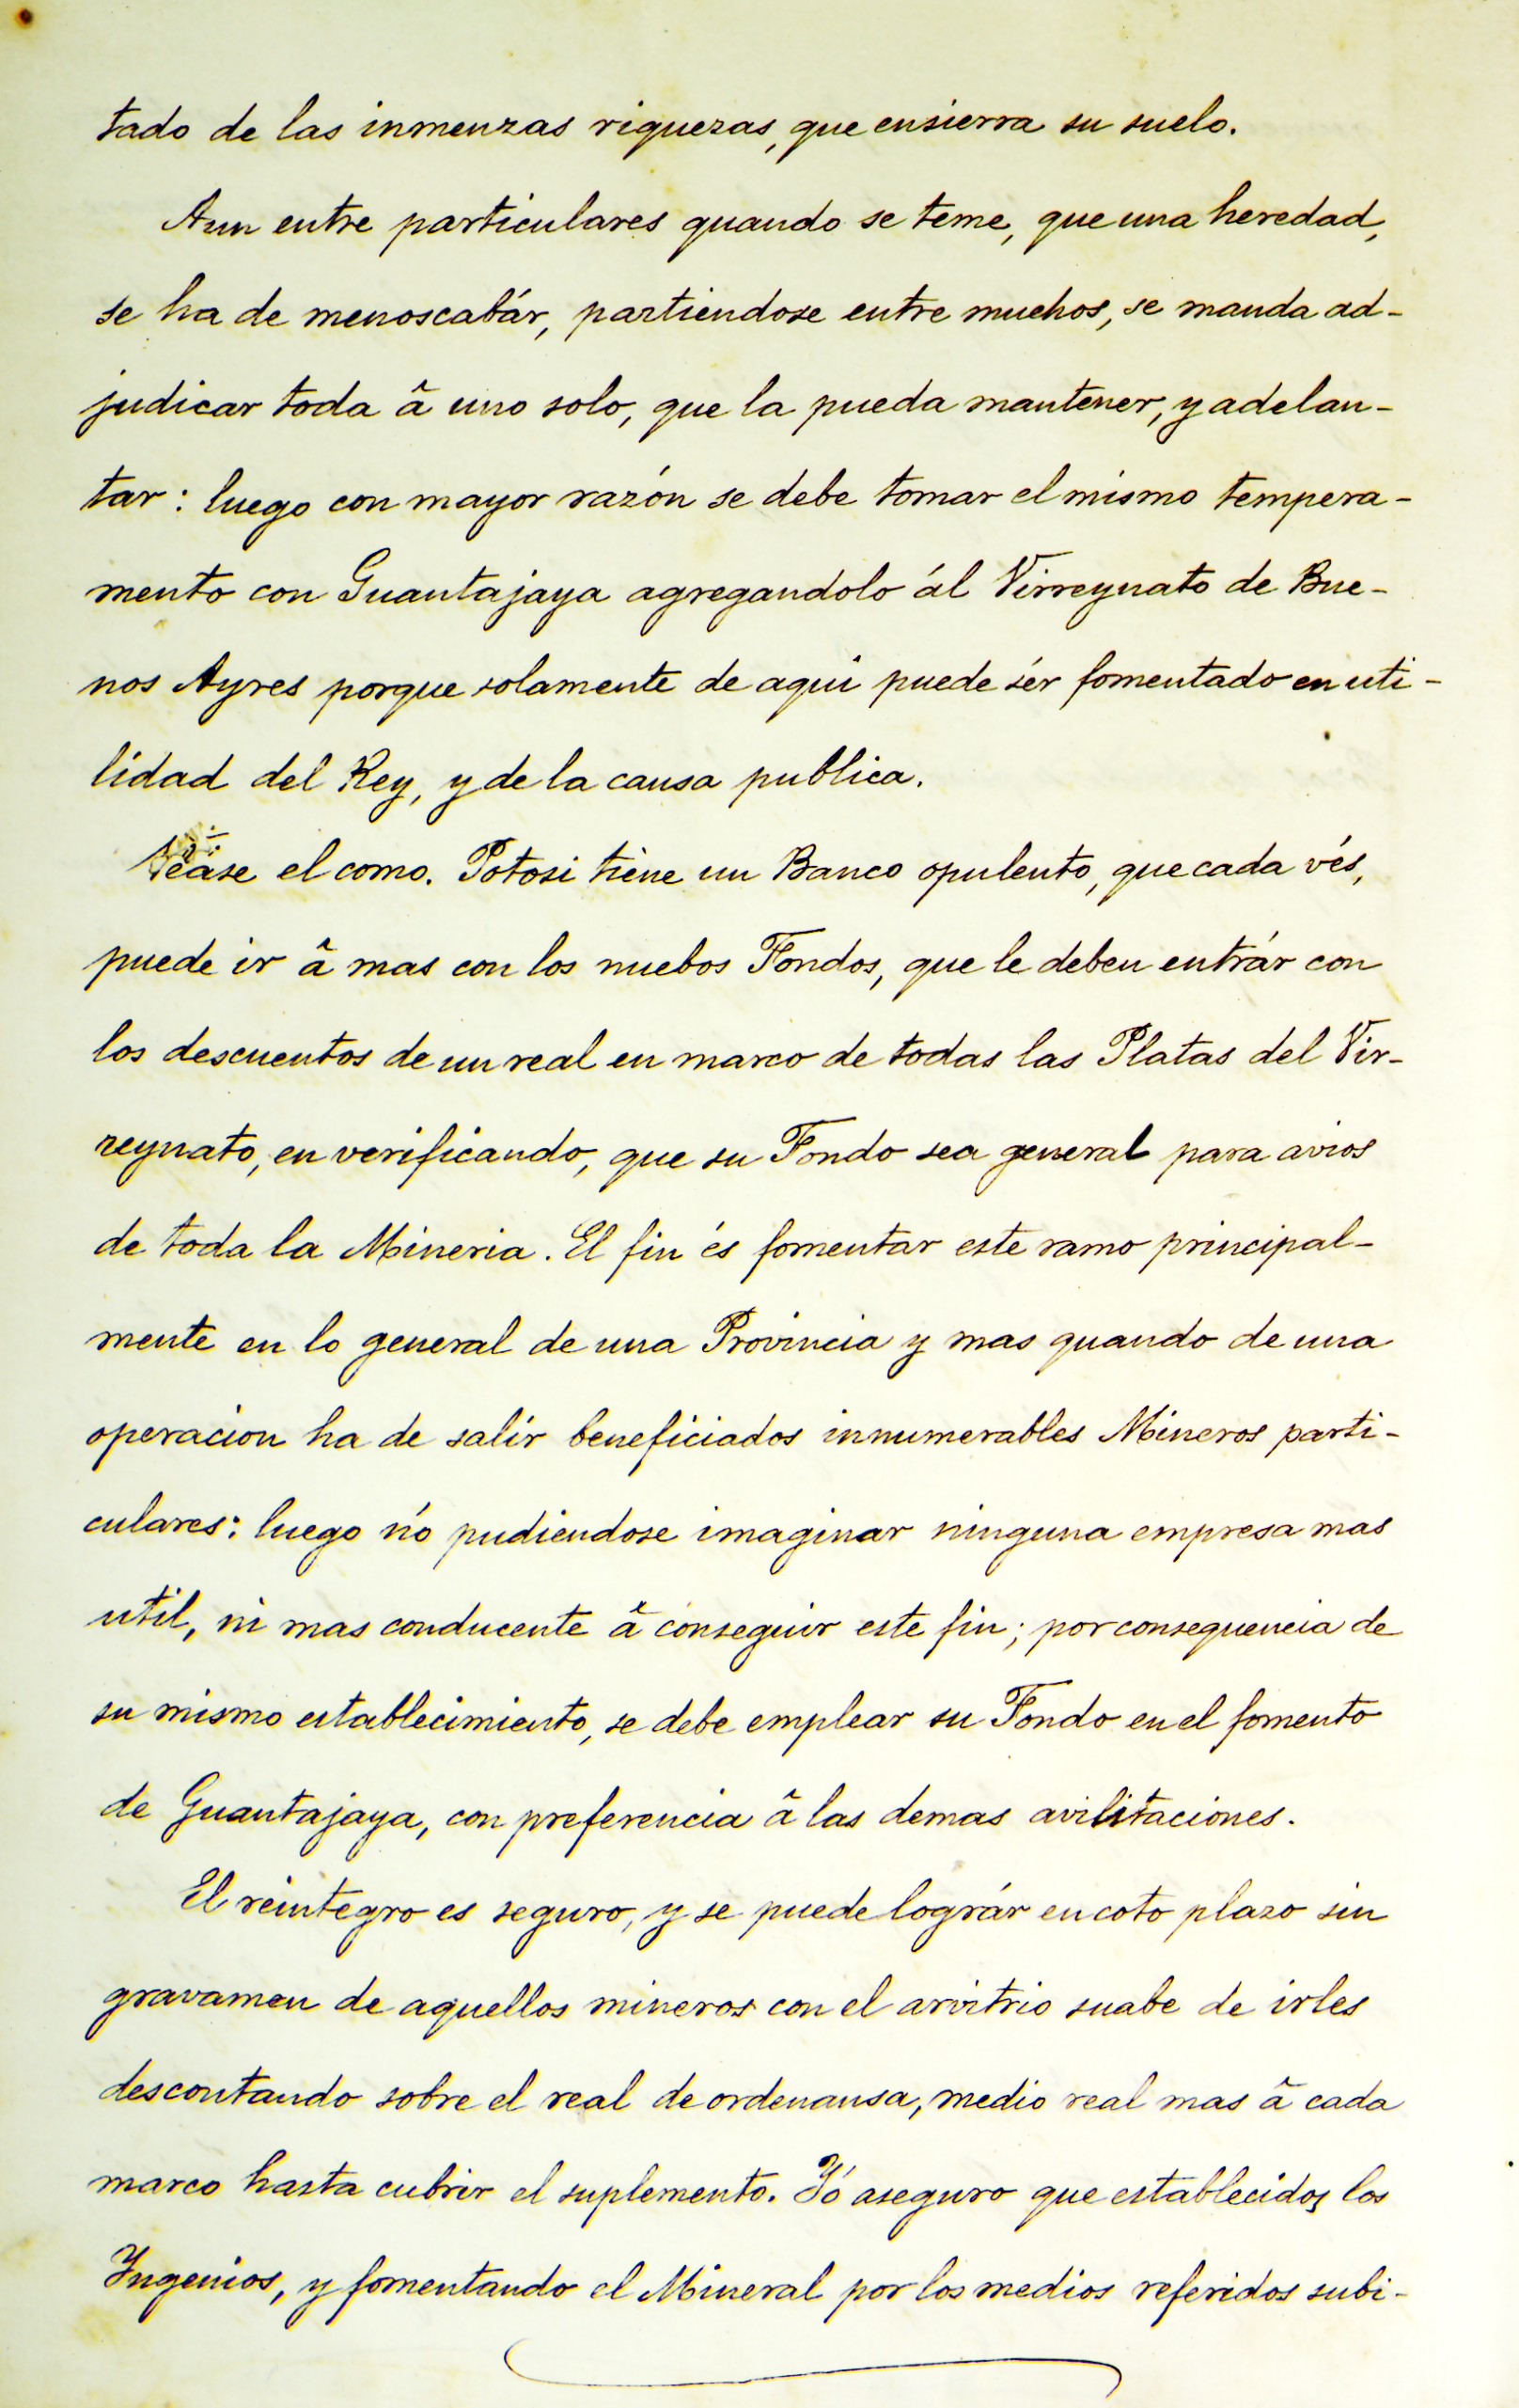 tado de las inmenzas riquezas, que ensierra su suelo.
Aun entre particulares quando se teme, que una heredad,
se ha de menoscabár, partiendose entre muchos, se manda ad-
judicar toda â uno solo, que la pueda mantener, y adelan-
tar: luego con mayor razón se debe tomar el mismo tempera-
mento con Guantajaya agregandolo ál Virreynato de Bue-
nos Ayres porque solamente de aqui puede sér fomentado en uti-
lidad del Rey, y de la causa publica.
Véase el como. Potosi tiene un Banco opulento, que cada vés,
puede ir â mas con los nuebos Fondos, que le deben entrár con
los descuentos de un real en marco de todas las Platas del Vir-
reynato, en verificando, que su Fondo sea general para avios
de toda la Mineria. El fin és fomentar este ramo principal-
mente en lo general de una Provincia y mas quando de una
operacion ha de salir beneficiados innumerables Mineros parti-
culares: luego nó pudiendose imaginar ninguna empresa mas
util, ni mas conducente â conseguir este fin; por consequencia de
su mismo establecimiento, se debe emplear su Fondo en el fomento
de Guantajaya, con preferencia â las demas avilitaciones.
El reintegro es seguro, y se puede lográr en coto plazo sin
gravamen de aquellos mineros con el arvitrio suabe de irles
descontando sobre el real de ordenansa, medio real mas â cada
marco hasta cubrir el suplemento. Yó aseguro que establecidos los
Yngenios, y fomentando el Mineral por los medios referidos subi-